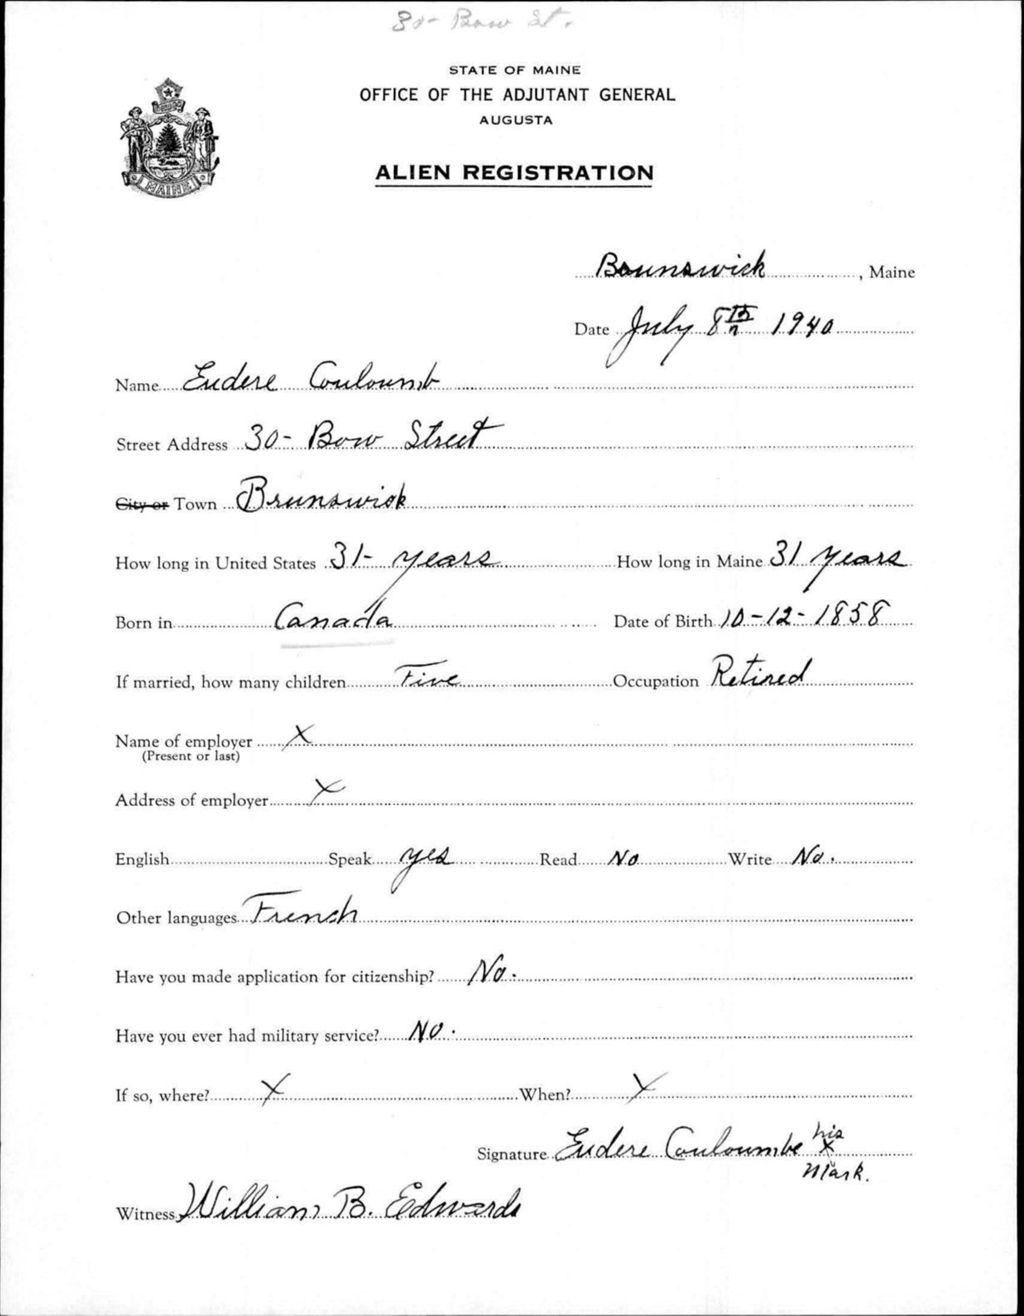 30- Bow St.
STATE OF MAINE
OFFICE OF THE ADJUTANT GENERAL
AUGUSTA
ALIEN REGISTRATION
MAINE
Brunswick, Maine
Date July 8th 1940
Name Eudere Couloumb
Street Address 30- Bow Street
City or Town Brunswick
How long in United States 31- years How long in Maine 31 years
Born in Canada Date of Birth 10-12-1858
If married, how many children Five Occupation Retired
Name of employer X
(Present or last)
Address of employer X
English Speak yes Read No Write No.
Other languages French
Have you made application for citizenship? No.
Have you ever had military service? No.
If so, where? X When? X
Signature Eudere Couloumbe his
X
Mark.
Witness William B. Edwards